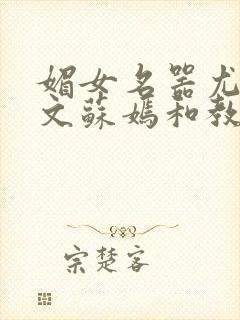 媚女名器尤
文蘇媽和教
宗楚客